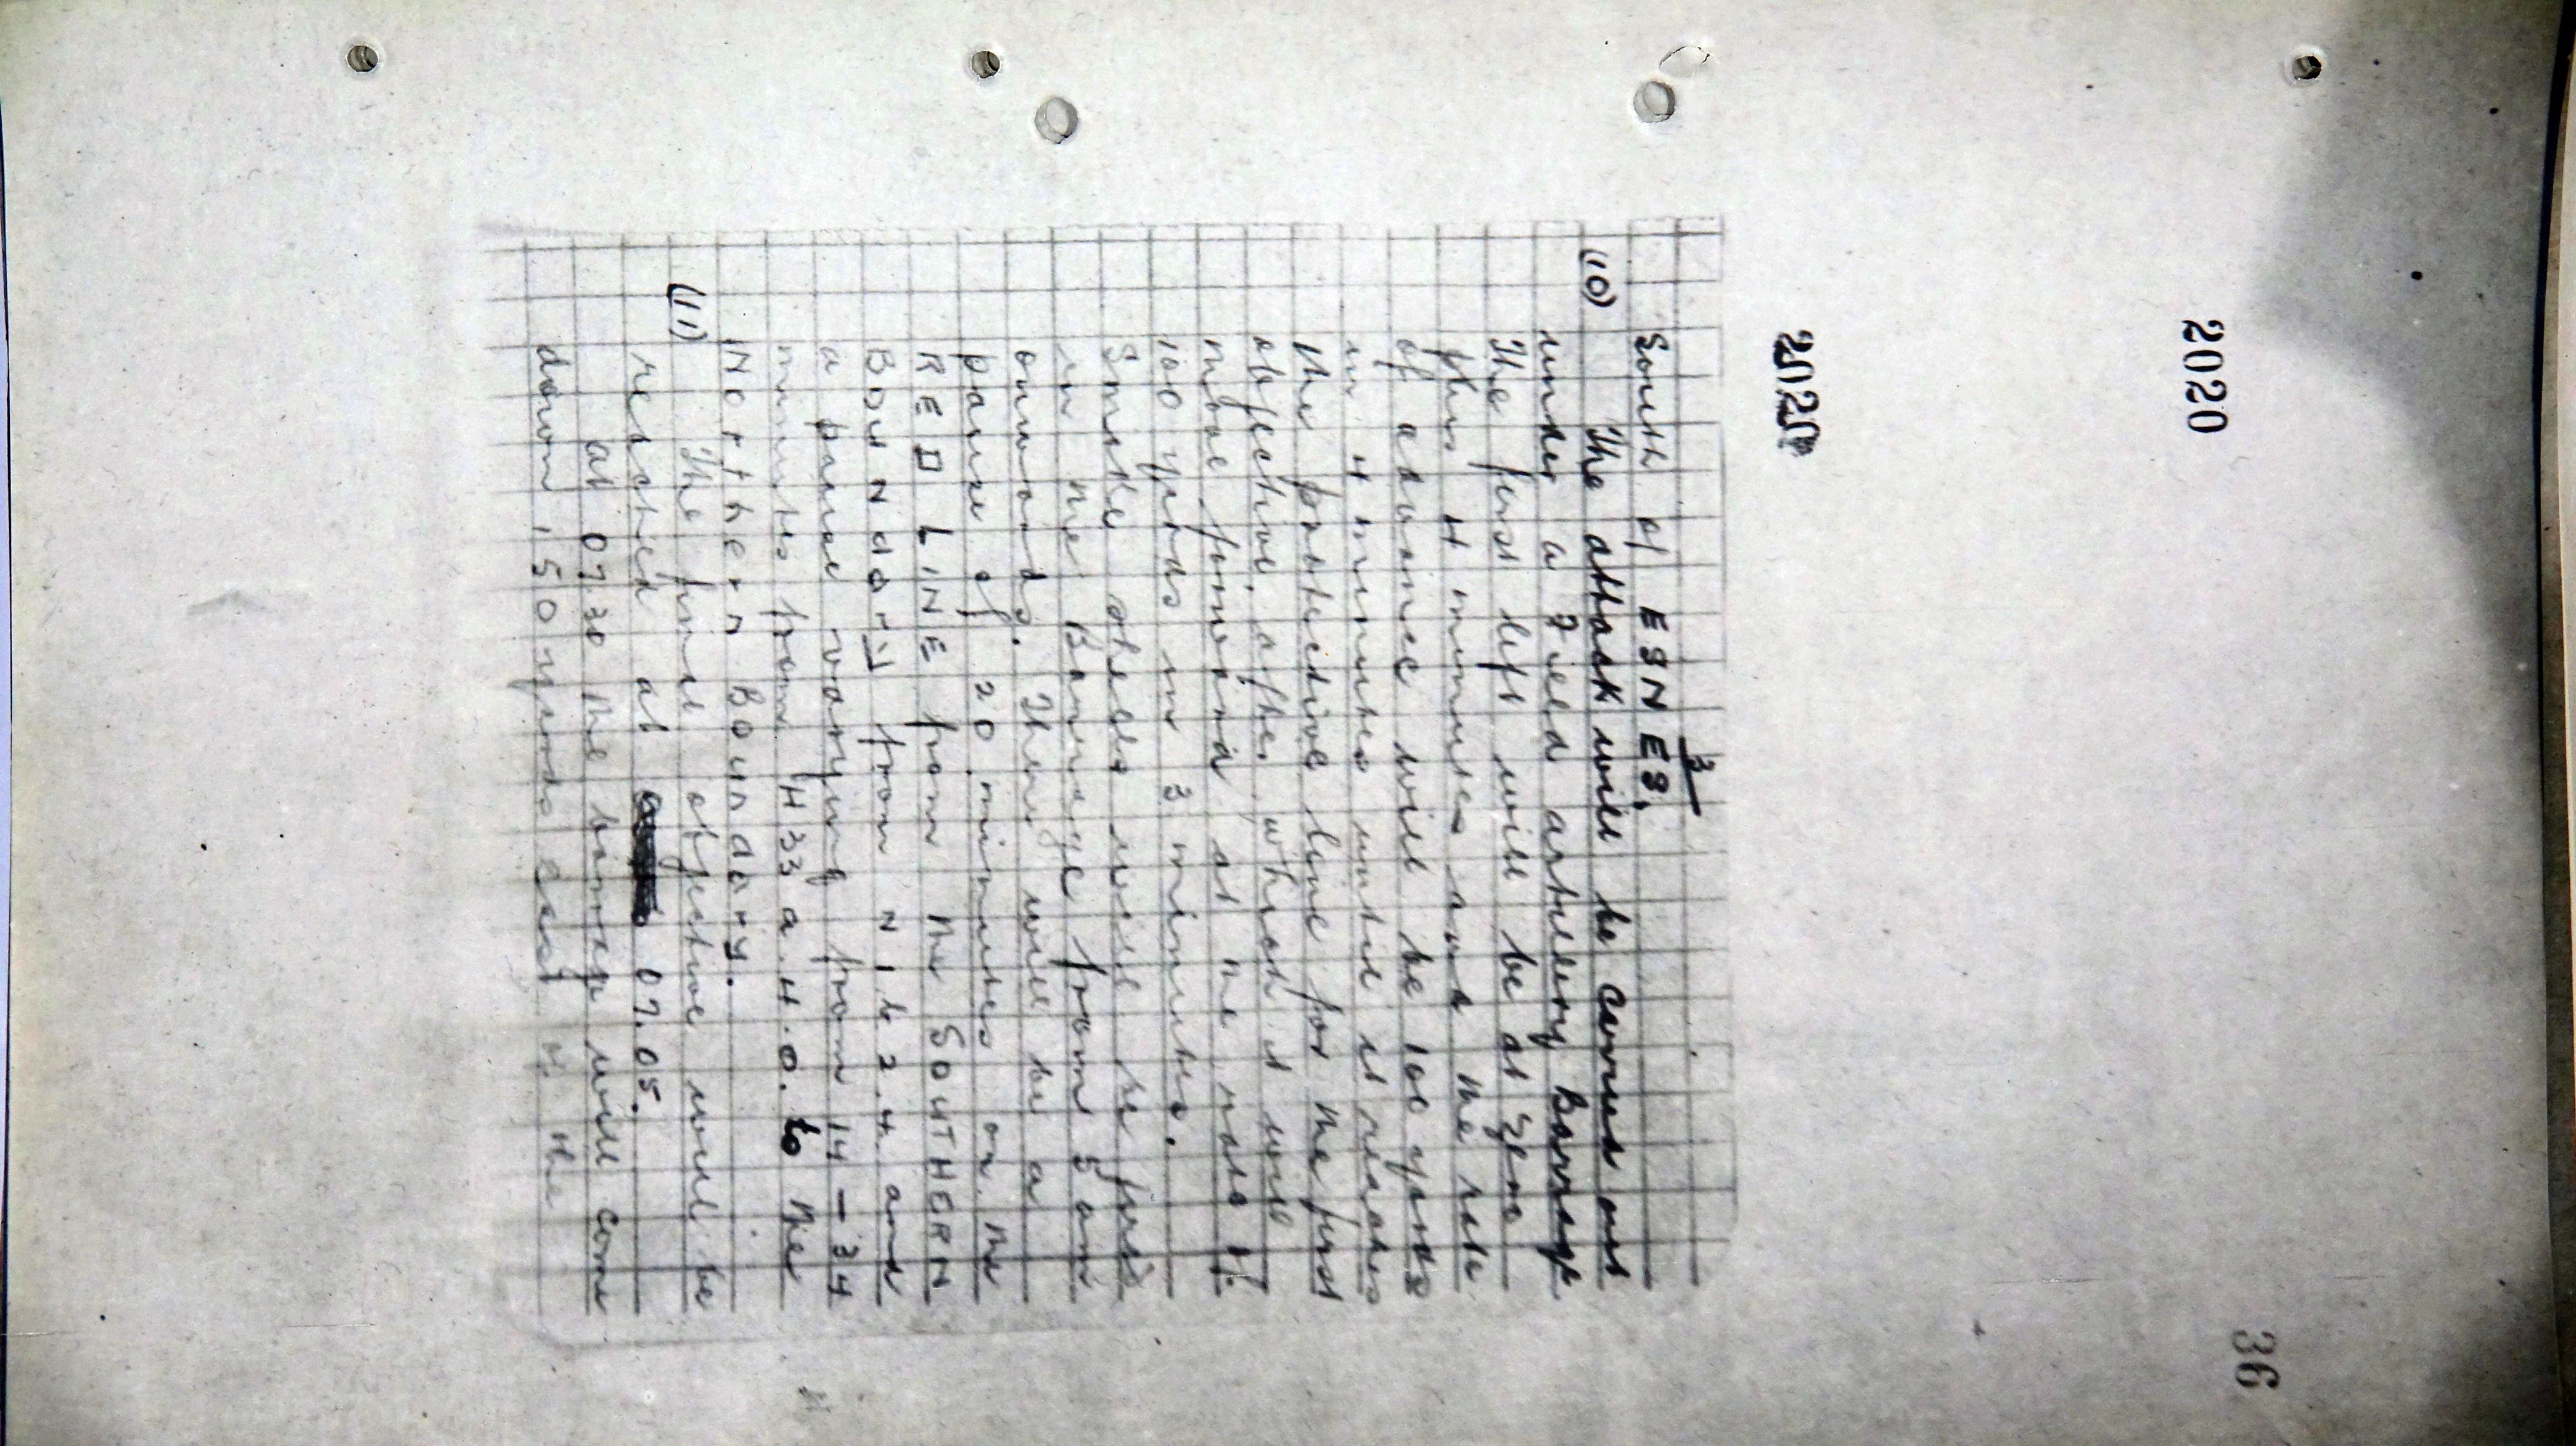 2020
36
2020
3
South of ESNES.
(10) The attack will be carried out
under a Field artillery Barrage
The first lift will be at zero
plus 4 minutes and the rate
of advance will be 100 yards
in 4 minutes until it reaches
the protective line for the first
objective, after which it will
move forward at the rate of
100 yards in 3 minutes.
Smoke shells will be fired
in the Barrage from 5 am
onwards. There will be a
pause of 20 minutes on the
RED LINE from the SOUTHERN
BOUNdarY from N1b2.4 and
a pause varying from 14 - 34
minutes from H33a.4.0. to the
Northern Boundary.
(11) The final objective will be
reached at 07.05.
at 0730 the barrage will come
down 150 yards east of the